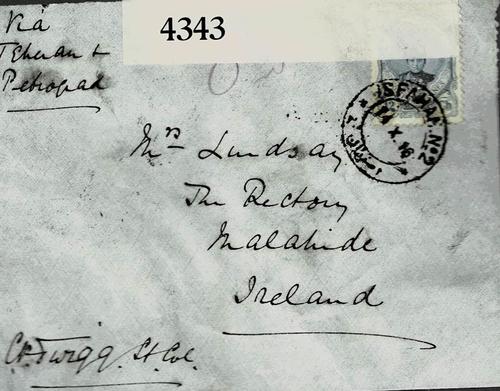 Via
Teheran &
Petrograd
4343
ISPAHAN No 2
14 X 16
Mrs Lindsay
The Rectory
Malahide
Ireland
Twigg. Lt. Col.